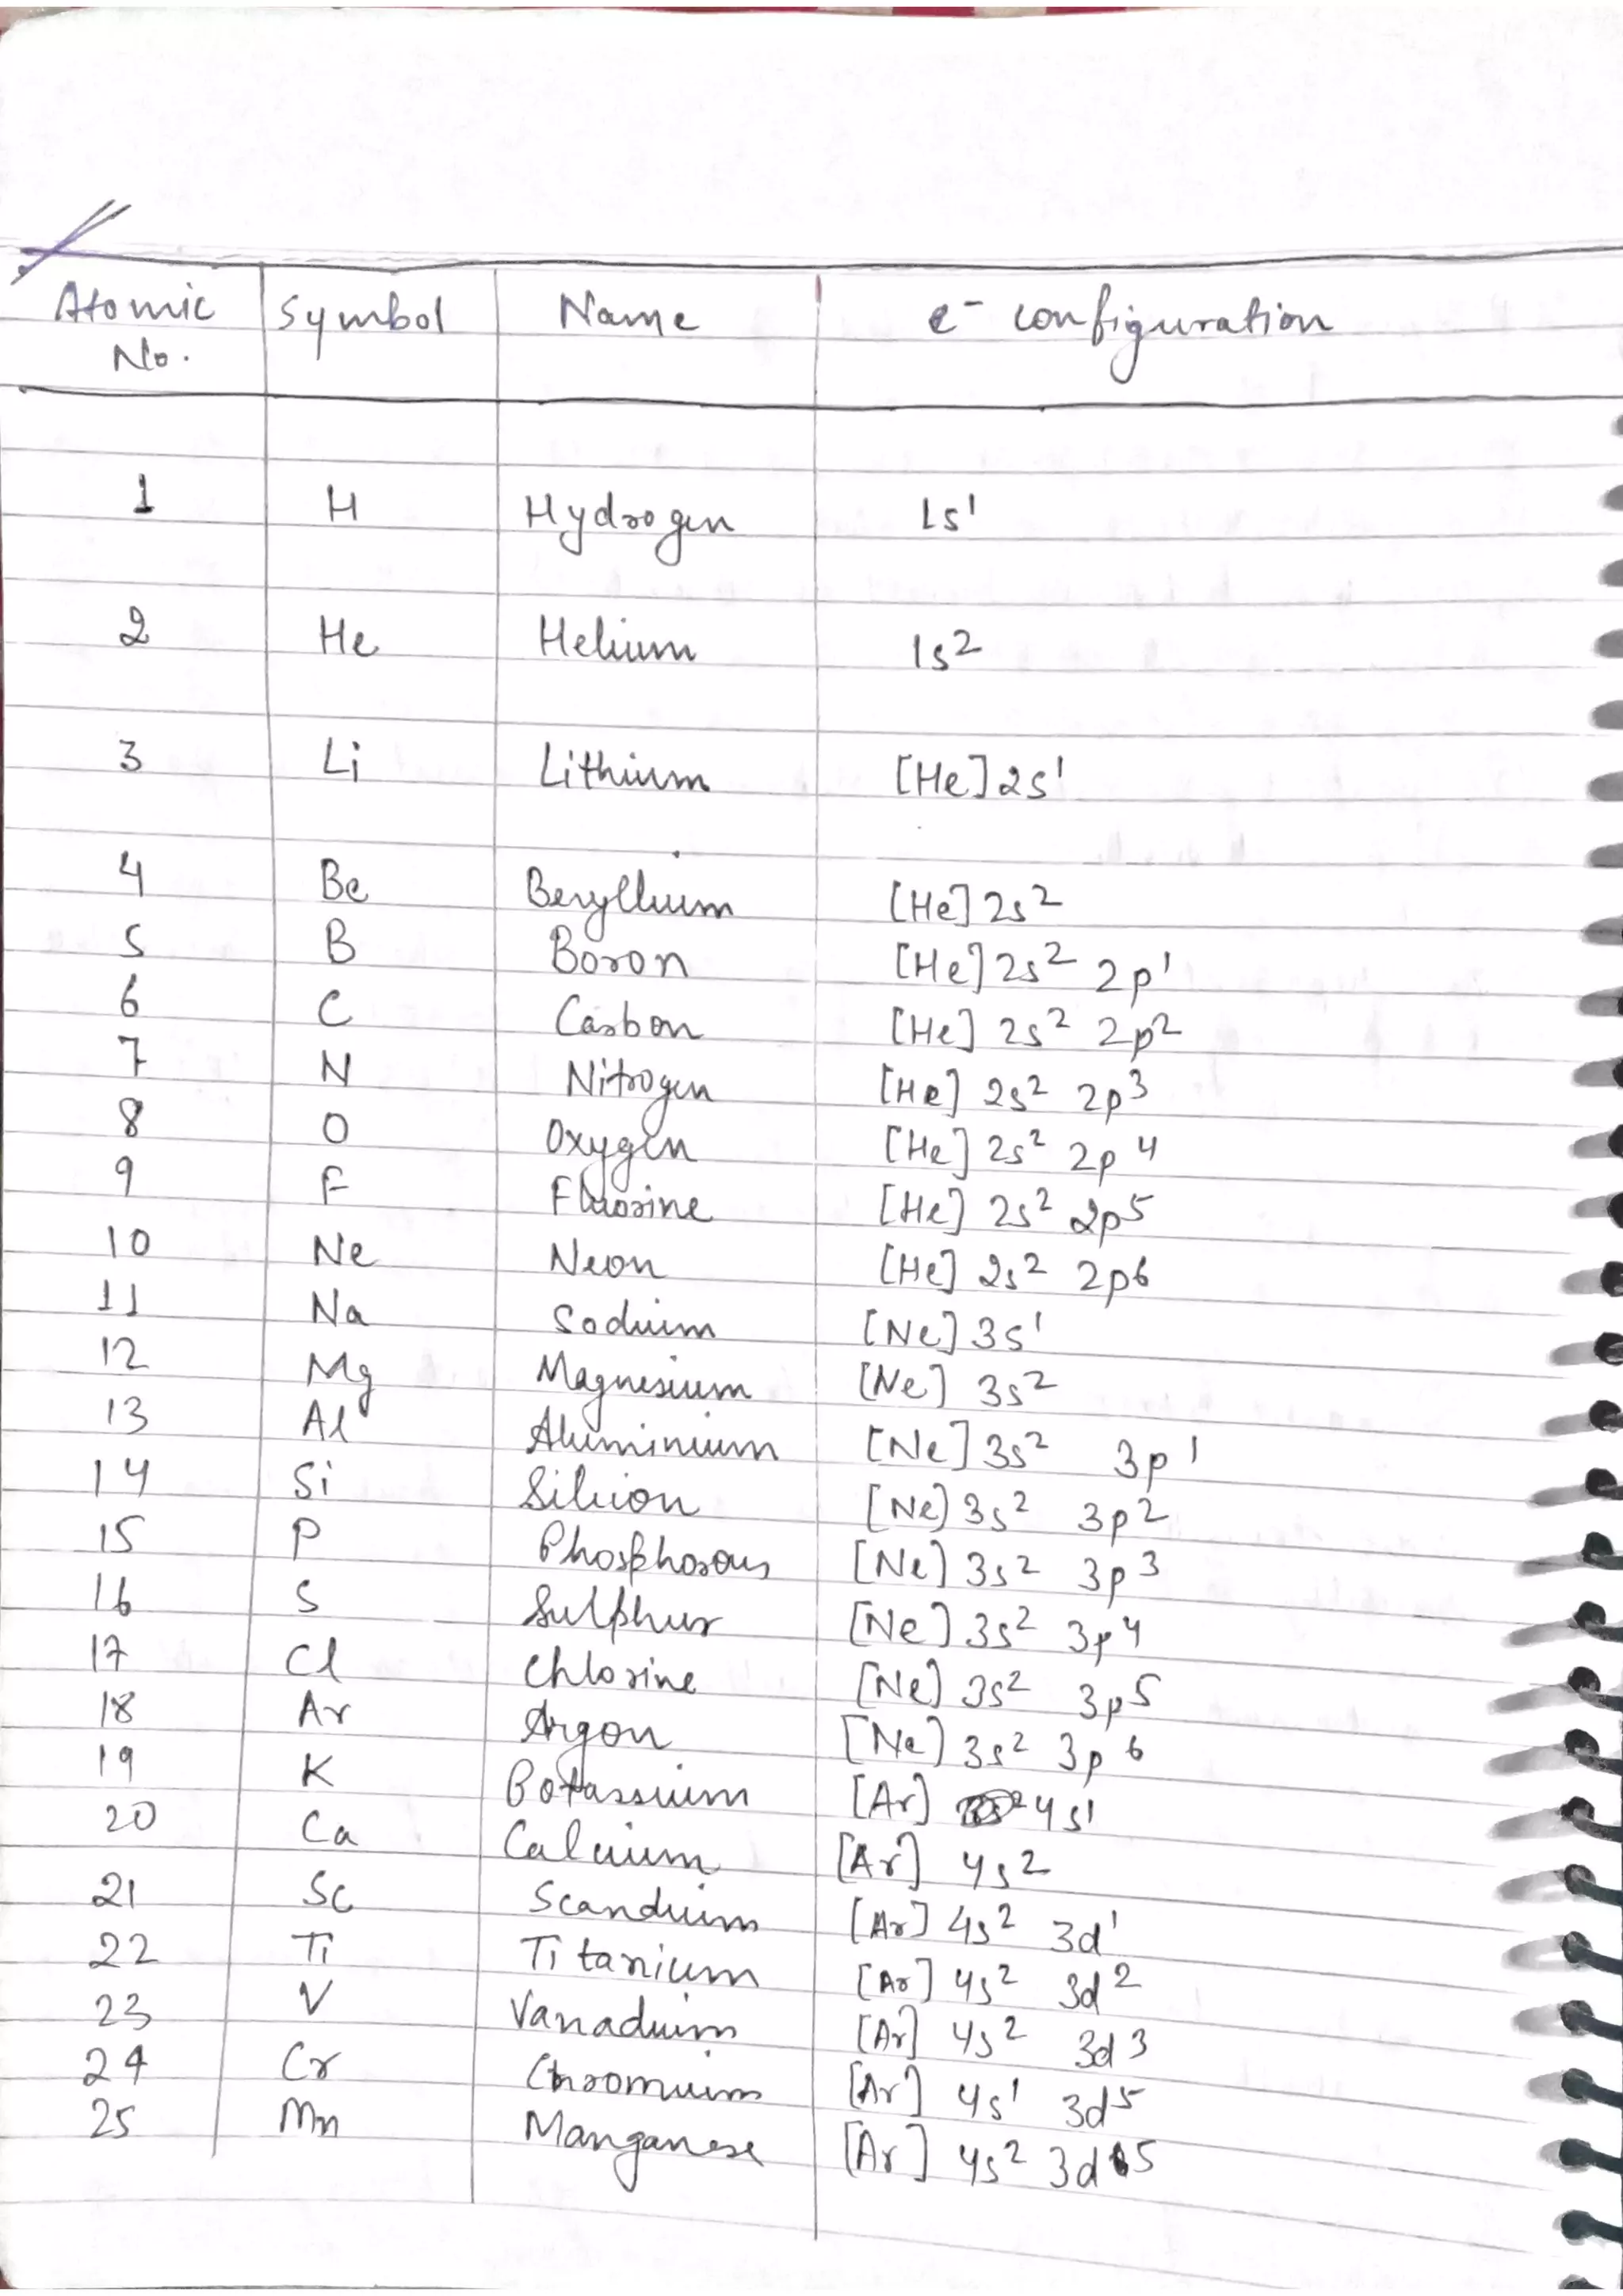 Atomic No. Symbol Name e⁻ configuration
1 H Hydrogen 1s¹
2 He Helium 1s²
3 Li Lithium [He] 2s¹
4 Be Beryllium [He] 2s²
5 B Boron [He] 2s² 2p¹
6 C Carbon [He] 2s² 2p²
7 N Nitrogen [He] 2s² 2p³
8 O Oxygen [He] 2s² 2p⁴
9 F Fluorine [He] 2s² 2p⁵
10 Ne Neon [He] 2s² 2p⁶
11 Na Sodium [Ne] 3s¹
12 Mg Magnesium [Ne] 3s²
13 Al Aluminium [Ne] 3s² 3p¹
14 Si Silicon [Ne] 3s² 3p²
15 P Phosphorous [Ne] 3s² 3p³
16 S Sulphur [Ne] 3s² 3p⁴
17 Cl Chlorine [Ne] 3s² 3p⁵
18 Ar Argon [Ne] 3s² 3p⁶
19 K Potassium [Ar] 4s¹
20 Ca Calcium [Ar] 4s²
21 Sc Scandium [Ar] 4s² 3d¹
22 Ti Titanium [Ar] 4s² 3d²
23 V Vanadium [Ar] 4s² 3d³
24 Cr Chromium [Ar] 4s¹ 3d⁵
25 Mn Manganese [Ar] 4s² 3d⁵